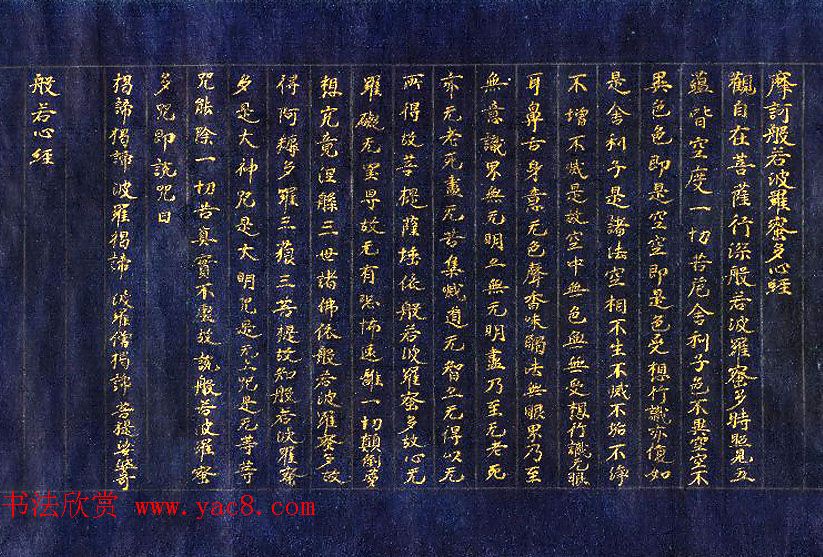 摩訶般若波羅蜜多心経
觀自在菩薩行深般若波羅蜜多時照見五
蘊皆空度一切苦厄舍利子色不異空空不
異色色即是空空即是色受想行識亦復如
是舍利子是諸法空相不生不滅不垢不淨
不增不減是故空中無色無受想行識无眼
耳鼻舌身意无色聲香味觸法無眼界乃至
無意識界無无明亦無无明盡乃至无老死
亦无老死盡无苦集滅道无智亦无得以无
所得故菩提薩埵依般若波羅蜜多故心无
罣礙无罣㝵故无有恐怖遠離一切顛倒夢
想究竟涅槃三世諸佛依般若波羅蜜多故
得阿耨多羅三藐三菩提故知般若波羅蜜
多是大神咒是大明咒是无上咒是无等等
咒能除一切苦真實不虛故說般若波羅蜜
多咒即說咒曰
揭諦揭諦波羅揭諦 波羅僧揭諦菩提娑婆訶
般若心経
书法欣赏 www.yac8.com